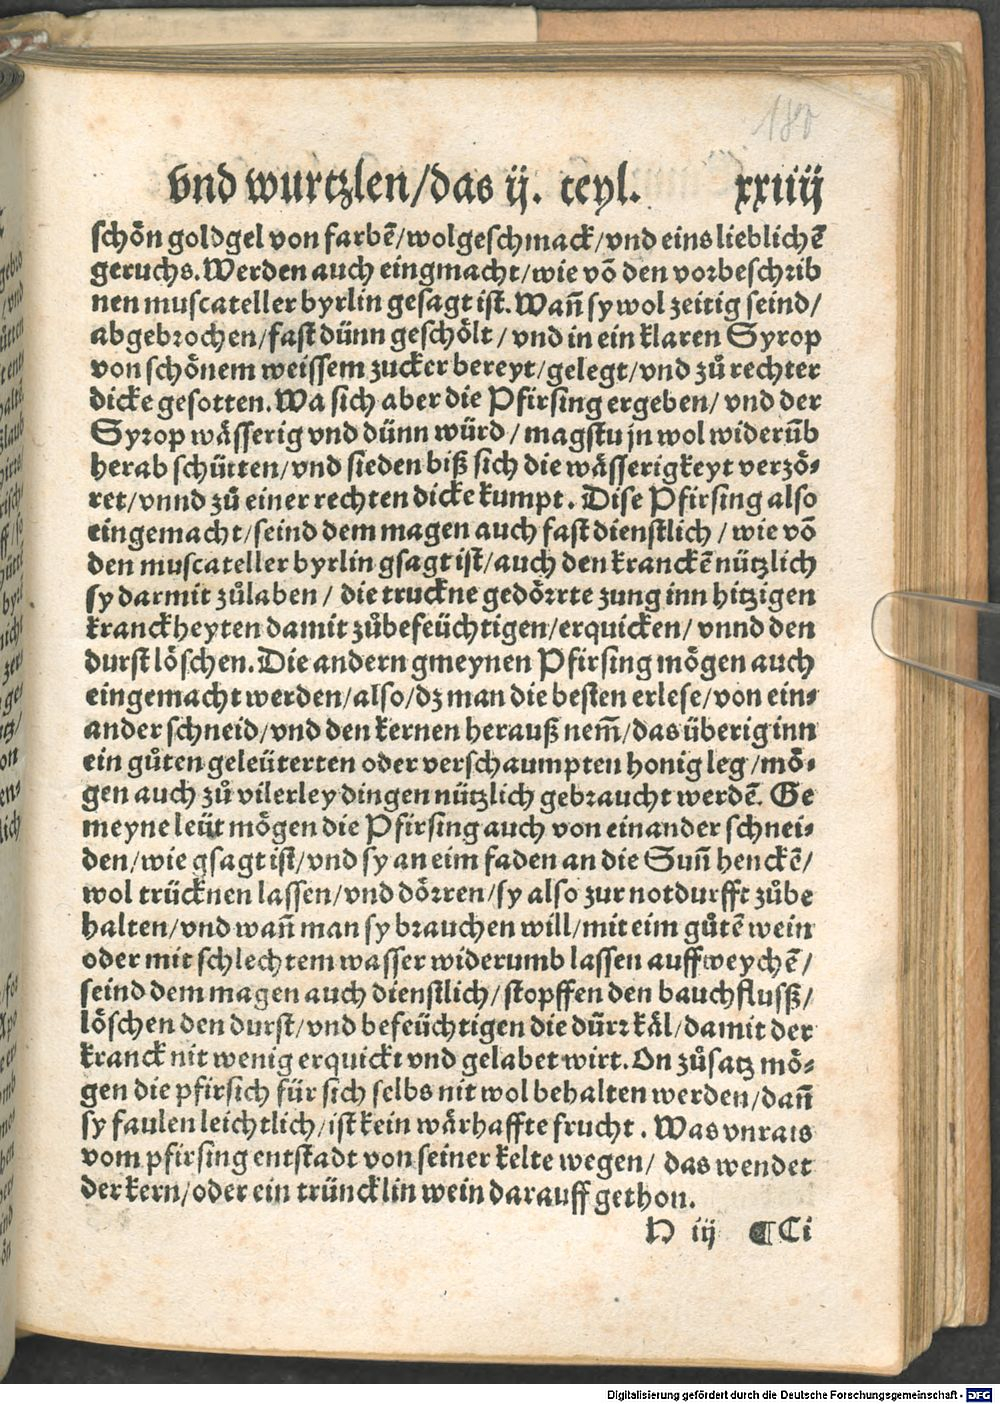 180
vnd wurtzlen/das ij. teyl. xxiiij
schön goldgel von farbē/wolgeschmack/vnd eins lieblichē
geruchs. Werden auch eingmacht/wie vō den vorbeschrib
nen muscateller byrlin gesagt ist. Wañ sy wol zeitig seind/
abgebrochen/fast dünn geschölt/vnd in ein klaren Syrop
von schönem weissem zucker bereyt/gelegt/vnd zů rechter
dicke gesotten. Wa sich aber die Pfirsing ergeben/vnd der
Syrop wässerig vnd dünn würd/magstu jn wol widerūb
herab schütten/vnd sieden biß sich die wässerigkeyt verzö⸗
ret/vnnd zů einer rechten dicke kumpt. Dise Pfirsing also
eingemacht/seind dem magen auch fast dienstlich/wie vō
den muscateller byrlin gsagt ist/auch den kranckē nützlich
sy darmit zůlaben/die truckne gedörrte zung inn hitzigen
kranckheyten damit zůbefeüchtigen/erquicken/vnnd den
durst löschen. Die andern gmeynen Pfirsing mögen auch
eingemacht werden/also/dz man die besten erlese/von ein⸗
ander schneid/vnd den kernen herauß nem̃/das überig inn
ein gůten geleüterten oder verschaumpten honig leg/mö⸗
gen auch zů vilerley dingen nützlich gebraucht werdē. Ge
meyne leüt mögen die Pfirsing auch von einander schnei⸗
den/wie gsagt ist/vnd sy an eim faden an die Suñ henckē/
wol trücknen lassen/vnd dörren/sy also zur notdurfft zůbe
halten/vnd wañ man sy brauchen will/mit eim gůtē wein
oder mit schlechtem wasser widerumb lassen auffweychē/
seind dem magen auch dienstlich/stopffen den bauchfluß/
löschen den durst/vnd befeüchtigen die dürr käl/damit der
kranck nit wenig erquickt vnd gelabet wirt. On zůsatz mö⸗
gen die pfirsich für sich selbs nit wol behalten werden/dañ
sy faulen leichtlich/ist kein wärhaffte frucht. Was vnrats
vom pfirsing entstadt von seiner kelte wegen/das wendet
der kern/oder ein trüncklin wein darauff gethon.
H iij ¶Ci
Digitalisierung gefördert durch die Deutsche Forschungsgemeinschaft - DFG